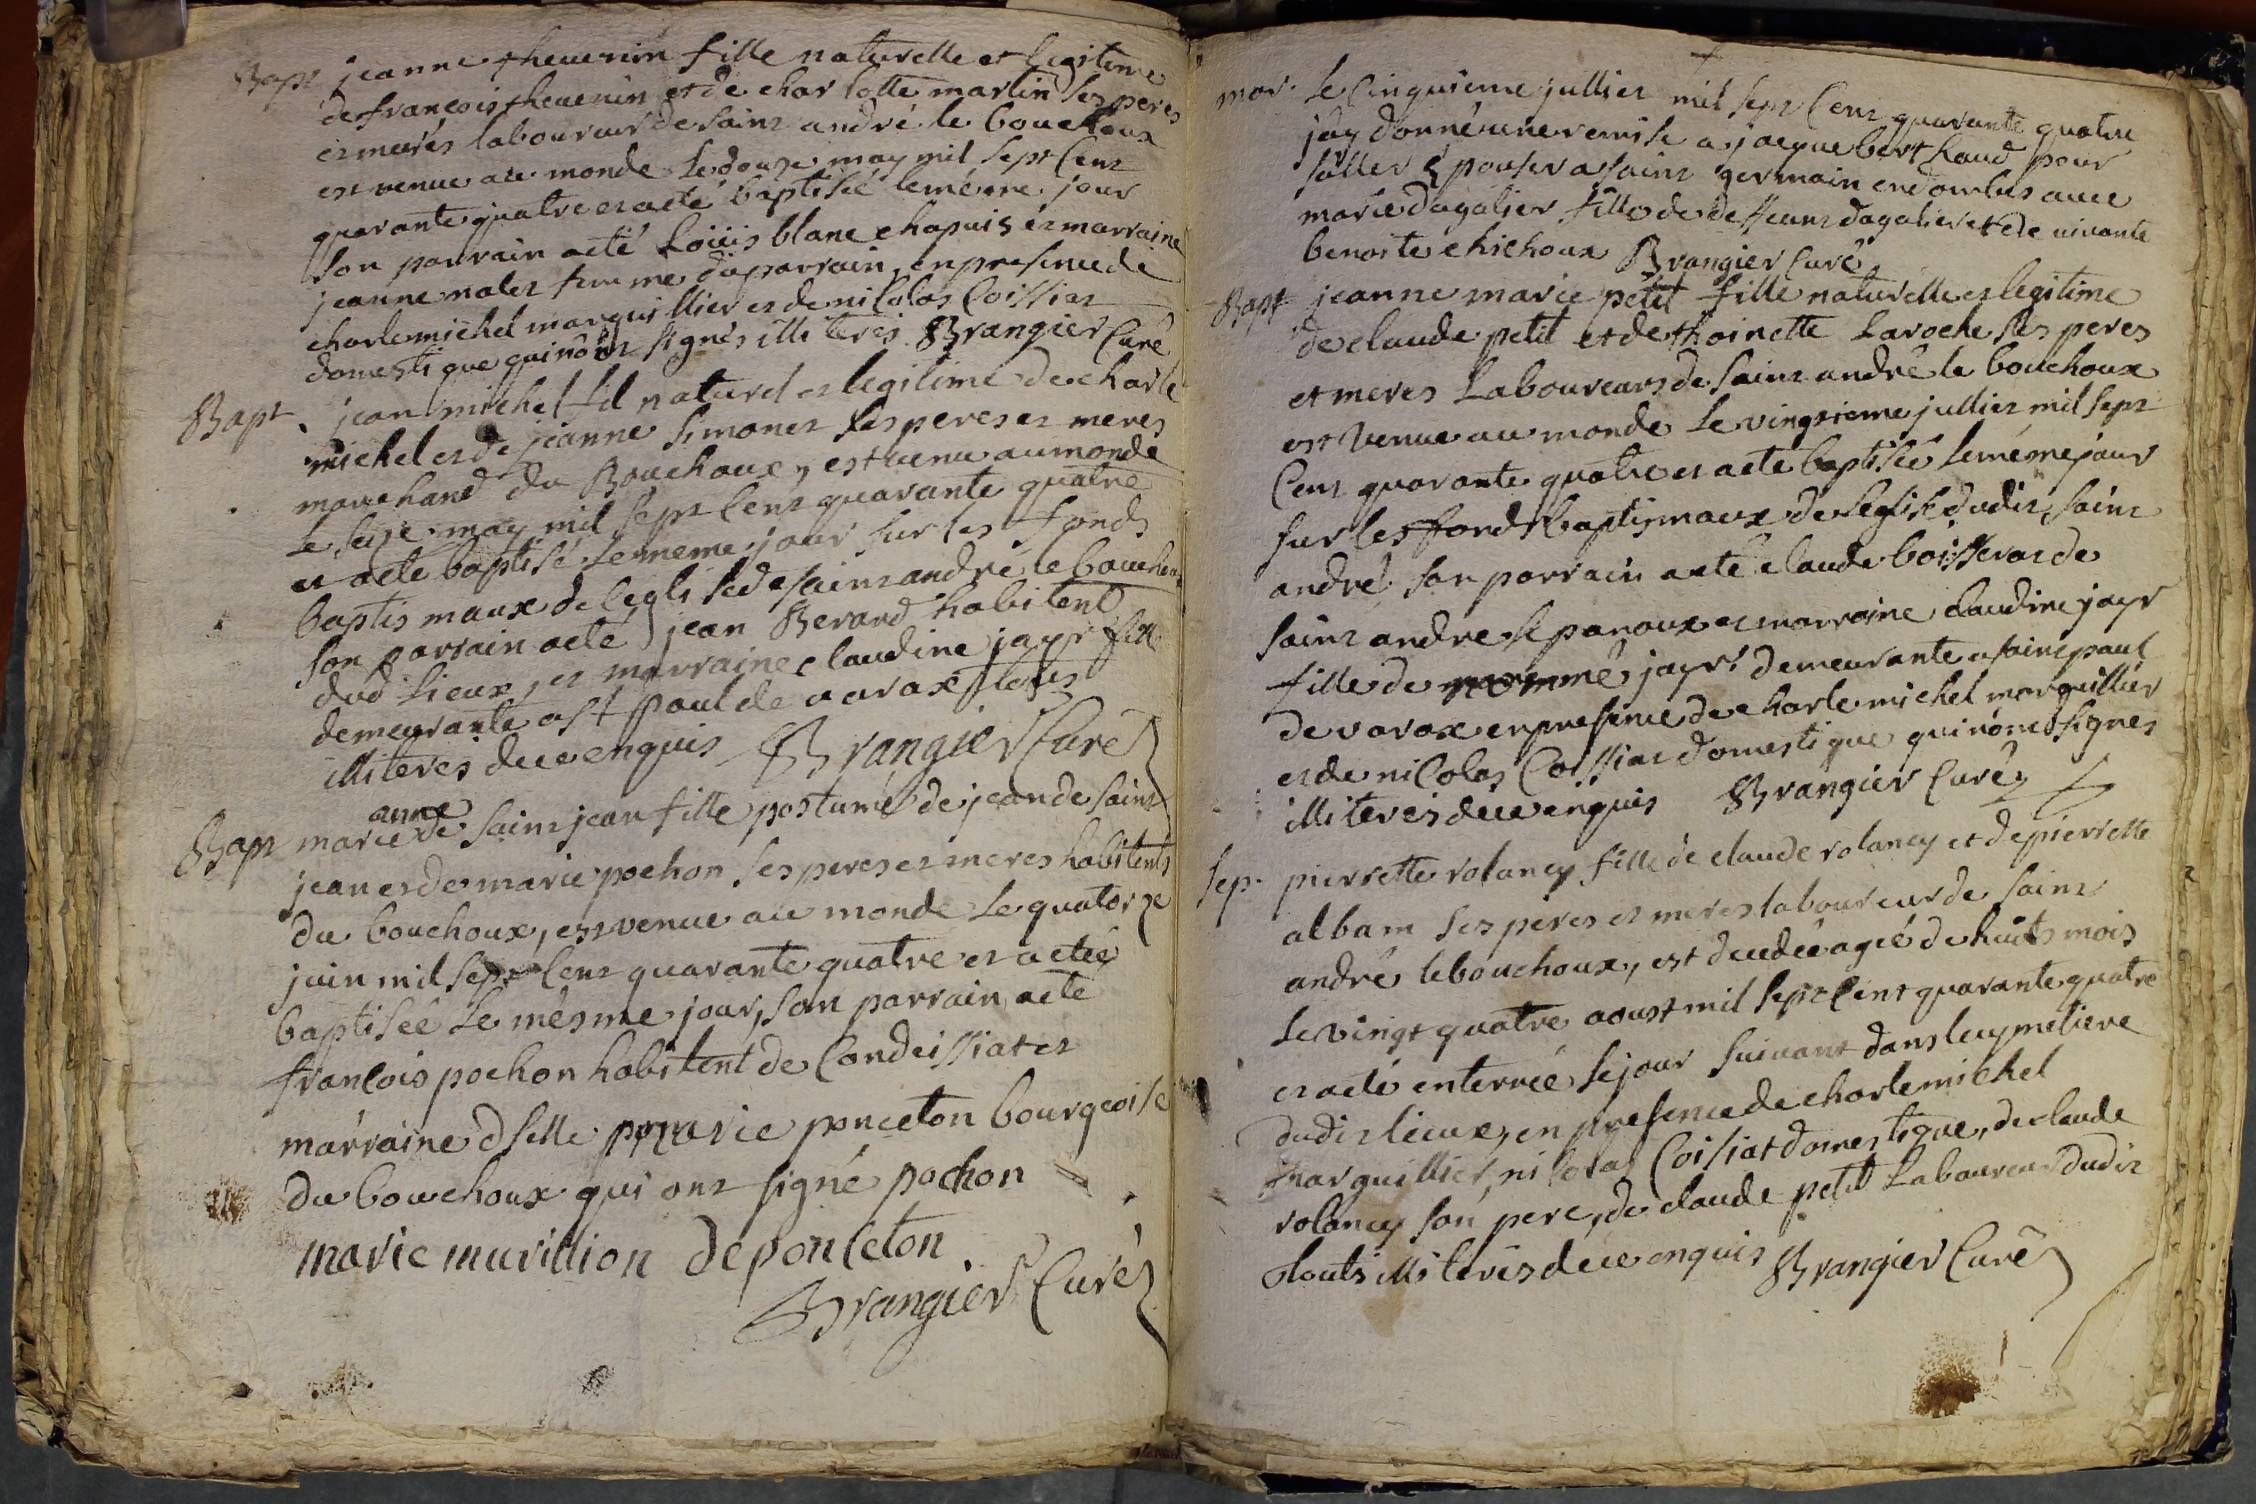 Bapt jeanne thevenin fille naturelle et legitime
de françois thevenin et de charlotte martin ses peres
et meres laboureur de saint andré le bouchoux
est venue au monde le douze may mil sept cent
quarante quatre et a eté baptisée le méme jour
son parrain a eté Loüis blanc chapuis et marraine
jeanne malet femme du parrain, en presence de
charle michel marguillier et de nicolas Coissiat
domestique qui n'ônt signés illiterés Brangier Curé
Bapt. jean michel fil naturel et legitime de charle
michel et de jeanne simonet ses peres et meres
marchand du Bouchoux, est venu au monde
le seize may mil sept cent quarante quatre
et a eté baptisé le meme jour sur les fonds
baptismaux de l'eglise de saint andré le bouchoux
son parrain a eté jean Berard habitent
dud lieux, et marraine claudine jayr fille
demeurante a st paul de varax touts
illiterés de ce enquis Brangier Curé
anne
Bapt marie de saint jean fille postume de jean de saint
jean et de marie pochon ses peres et meres habitents
du bouchoux, est venue au monde le quatorze
juin mil sept cent quarante quatre et a etée
baptisée le mésme jour, son parrain a eté
françois pochon habitent de Condeissiat et
marraine dselle marie ponceton bourgeoise
du bouchoux qui ont signé pochon
marie murillion de ponceton
Brangier Curé
mar. Le Cinquieme jullier mil sept Cent quarante quatre
jáy donné une remise a jacque berthaud pour
s'aller épouser a saint germain en dombes avec
marie dagalier fille de deffeunt dagalier et de vivante
benoite chichoux Brangier Curé
Bapt jeanne marie petit fille naturelle et legitime
de claude petit et de thoinette Laroche ses peres
et meres Laboureurs de saint andré le bouchoux
est venue au monde le vingtieme jullier mil sept
Cent quarante quatre et a eté baptisée le méme jour
sur les fonds baptismaux de l'eglise dudit saint
andré son parrain a eté claude boisserat de
saint andre le panoux et marraine claudine jayr
fille de nommé jayr demeurante a saint paul
de varax en presence de charle michel marguillier
et de nicolas Coissiat domestique qui n'ônt signes
illiterés de ce enquis Brangier Curé
sep. pierrette rolancy fille de claude rolancy et de pierrette
alban ses peres et meres laboureur de saint
andré le bouchoux, est decedée agée de huits mois
le vingt quatre aoust mil sept cent quarante quatre
et a eté enterrée le jour suivant dans le cymetiere
dudit lieux, en presence de charle michel
marguillier, nicolas Coisiat domestique, de claude
rolancy son pere, de claude petit Laboureur dudit
touts illiterés de ce enquis Brangier Curé